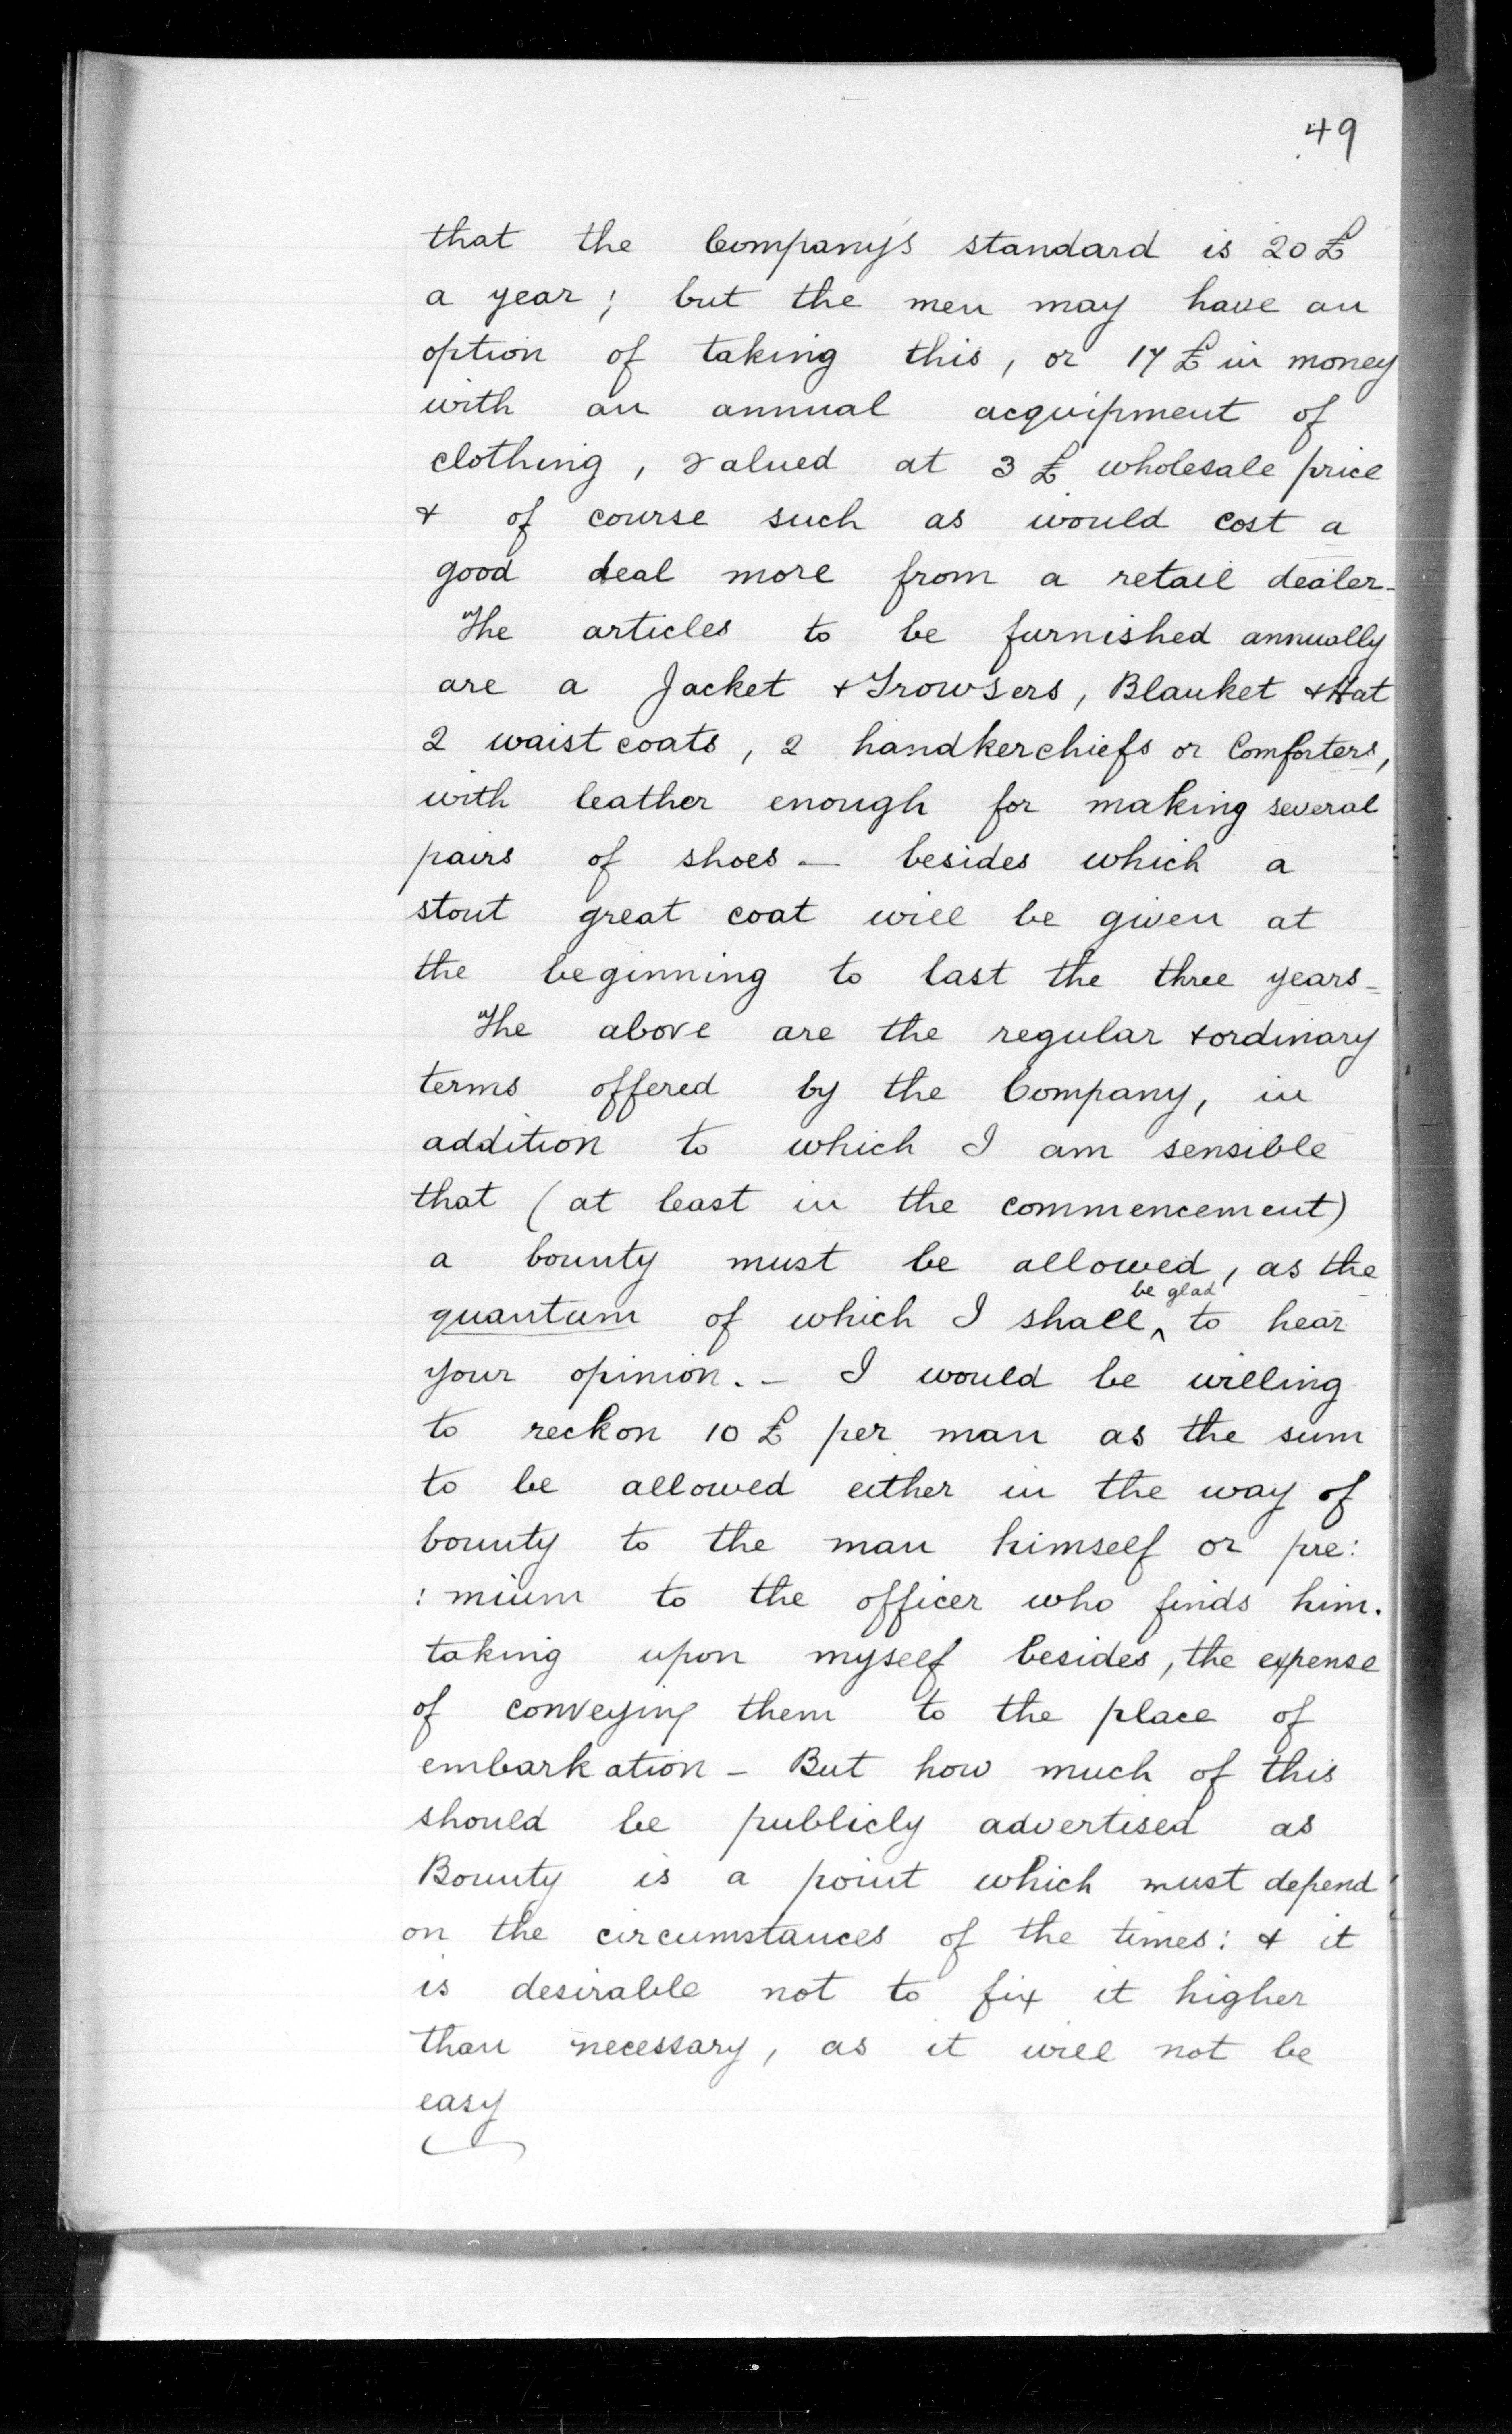 49
that the Company's standard is 20 £
a year; but the men may have an
option of taking this, or 17 £ in money
with an annual acquipment of
clothing, valued at 3 £ wholesale price
& of course such as would cost a
good deal more from a retail dealer-
The articles to be furnished annually
are a Jacket & Trowsers, Blanket & Hat
2 waistcoats, 2 handkerchiefs or Comforters,
with leather enough for making several
pairs of shoes — besides which a
stout great coat will be given at
the beginning to last the three years-
The above are the regular & ordinary
terms offered by the Company, in
addition to which I am sensible
that (at least in the commencement)
a bounty must be allowed, as the
be glad
quantum of which I shall ^ to hear
your opinion. - I would be willing
to reckon 10 £ per man as the sum
to be allowed either in the way of
bounty to the man himself or pre:
:mium to the officer who finds him.
taking upon myself besides, the expense
of conveying them to the place of
embarkation - But how much of this
should be publicly advertised as
Bounty is a point which must depend
on the circumstances of the times: & it
is desirable not to fix it higher
than necessary, as it will not be
easy